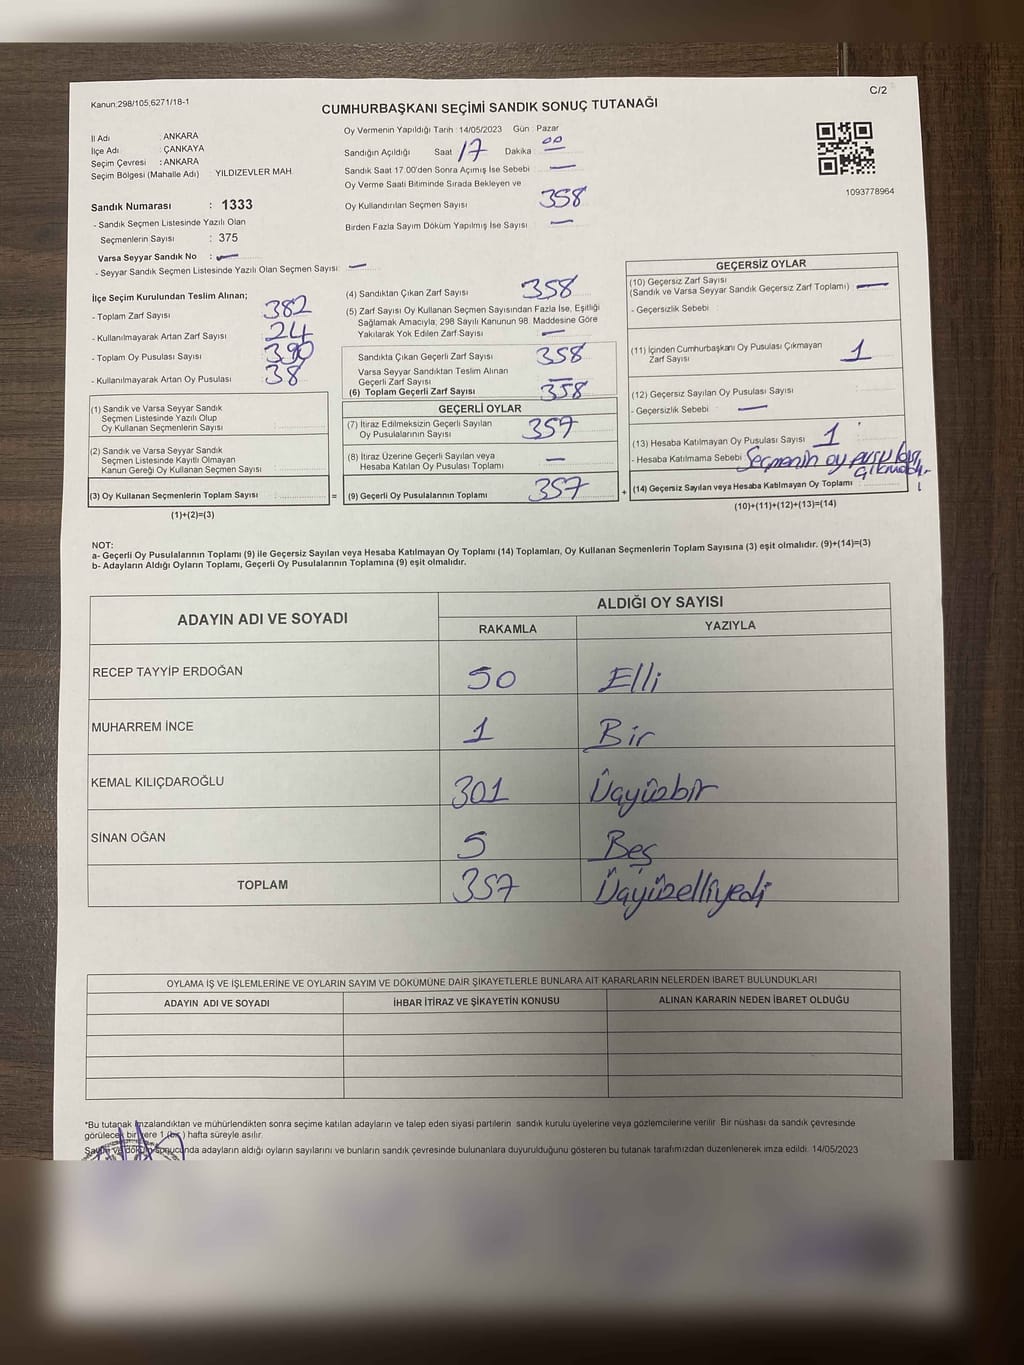 Kanun:298/105,6271/18-1
C/2
CUMHURBAŞKANI SEÇİMİ SANDIK SONUÇ TUTANAĞI
İl Adı : ANKARA
İlçe Adı : ÇANKAYA
Seçim Çevresi : ANKARA
Seçim Bölgesi (Mahalle Adı) : YILDIZEVLER MAH.
Sandık Numarası : 1333
- Sandık Seçmen Listesinde Yazılı Olan
Seçmenlerin Sayısı : 375
Varsa Seyyar Sandık No : —
- Seyyar Sandık Seçmen Listesinde Yazılı Olan Seçmen Sayısı: —
Oy Vermenin Yapıldığı Tarih : 14/05/2023 Gün : Pazar
Sandığın Açıldığı Saat 17 Dakika 00
Sandık Saat 17.00'den Sonra Açımış İse Sebebi —
Oy Verme Saati Bitiminde Sırada Bekleyen ve
Oy Kullandırılan Seçmen Sayısı 358
Birden Fazla Sayım Döküm Yapılmış İse Sayısı —
1093778964
İlçe Seçim Kurulundan Teslim Alınan;
- Toplam Zarf Sayısı 382
- Kullanılmayarak Artan Zarf Sayısı 24
- Toplam Oy Pusulası Sayısı 390
- Kullanılmayarak Artan Oy Pusulası 38
(1) Sandık ve Varsa Seyyar Sandık
Seçmen Listesinde Yazılı Olup
Oy Kullanan Seçmenlerin Sayısı
(2) Sandık ve Varsa Seyyar Sandık
Seçmen Listesinde Kayıtlı Olmayan
Kanun Gereği Oy Kullanan Seçmen Sayısı
(3) Oy Kullanan Seçmenlerin Toplam Sayısı =
(1)+(2)=(3)
(4) Sandıktan Çıkan Zarf Sayısı 358
(5) Zarf Sayısı Oy Kullanan Seçmen Sayısından Fazla İse, Eşitliği
Sağlamak Amacıyla, 298 Sayılı Kanunun 98. Maddesine Göre
Yakılarak Yok Edilen Zarf Sayısı —
Sandıkta Çıkan Geçerli Zarf Sayısı 358
Varsa Seyyar Sandıktan Teslim Alınan
Geçerli Zarf Sayısı —
(6) Toplam Geçerli Zarf Sayısı 358
GEÇERLİ OYLAR
(7) İtiraz Edilmeksizin Geçerli Sayılan
Oy Pusulalarının Sayısı 357
(8) İtiraz Üzerine Geçerli Sayılan veya
Hesaba Katılan Oy Pusulası Toplamı —
(9) Geçerli Oy Pusulalarının Toplamı 357 +
GEÇERSİZ OYLAR
(10) Geçersiz Zarf Sayısı
(Sandık ve Varsa Seyyar Sandık Geçersiz Zarf Toplamı) —
- Geçersizlik Sebebi :
(11) İçinden Cumhurbaşkanı Oy Pusulası Çıkmayan
Zarf Sayısı 1
(12) Geçersiz Sayılan Oy Pusulası Sayısı :
- Geçersizlik Sebebi : —
(13) Hesaba Katılmayan Oy Pusulası Sayısı 1
- Hesaba Katılmama Sebebi : Seçmenin oy pusulası
çıkmadı.
(14) Geçersiz Sayılan veya Hesaba Katılmayan Oy Toplamı :
(10)+(11)+(12)+(13)=(14)
NOT:
a- Geçerli Oy Pusulalarının Toplamı (9) ile Geçersiz Sayılan veya Hesaba Katılmayan Oy Toplamı (14) Toplamları, Oy Kullanan Seçmenlerin Toplam Sayısına (3) eşit olmalıdır. (9)+(14)=(3)
b- Adayların Aldığı Oyların Toplamı, Geçerli Oy Pusulalarının Toplamına (9) eşit olmalıdır.
ADAYIN ADI VE SOYADI
ALDIĞI OY SAYISI
RAKAMLA YAZIYLA
RECEP TAYYİP ERDOĞAN 50 Elli
MUHARREM İNCE 1 Bir
KEMAL KILIÇDAROĞLU 301 Üçyüzbir
SİNAN OĞAN 5 Beş
TOPLAM 357 Üçyüzelliyedi
OYLAMA İŞ VE İŞLEMLERİNE VE OYLARIN SAYIM VE DÖKÜMÜNE DAİR ŞİKAYETLERLE BUNLARA AİT KARARLARIN NELERDEN İBARET BULUNDUKLARI
ADAYIN ADI VE SOYADI İHBAR İTİRAZ VE ŞİKAYETİN KONUSU ALINAN KARARIN NEDEN İBARET OLDUĞU
*Bu tutanak imzalandıktan ve mühürlendikten sonra seçime katılan adayların ve talep eden siyasi partilerin sandık kurulu üyelerine veya gözlemcilerine verilir. Bir nüshası da sandık çevresinde
görülecek bir yere 1 (bir) hafta süreyle asılır.
Sayım ve döküm sonucunda adayların aldığı oyların sayılarını ve bunların sandık çevresinde bulunanlara duyurulduğunu gösteren bu tutanak tarafımızdan düzenlenerek imza edildi. 14/05/2023